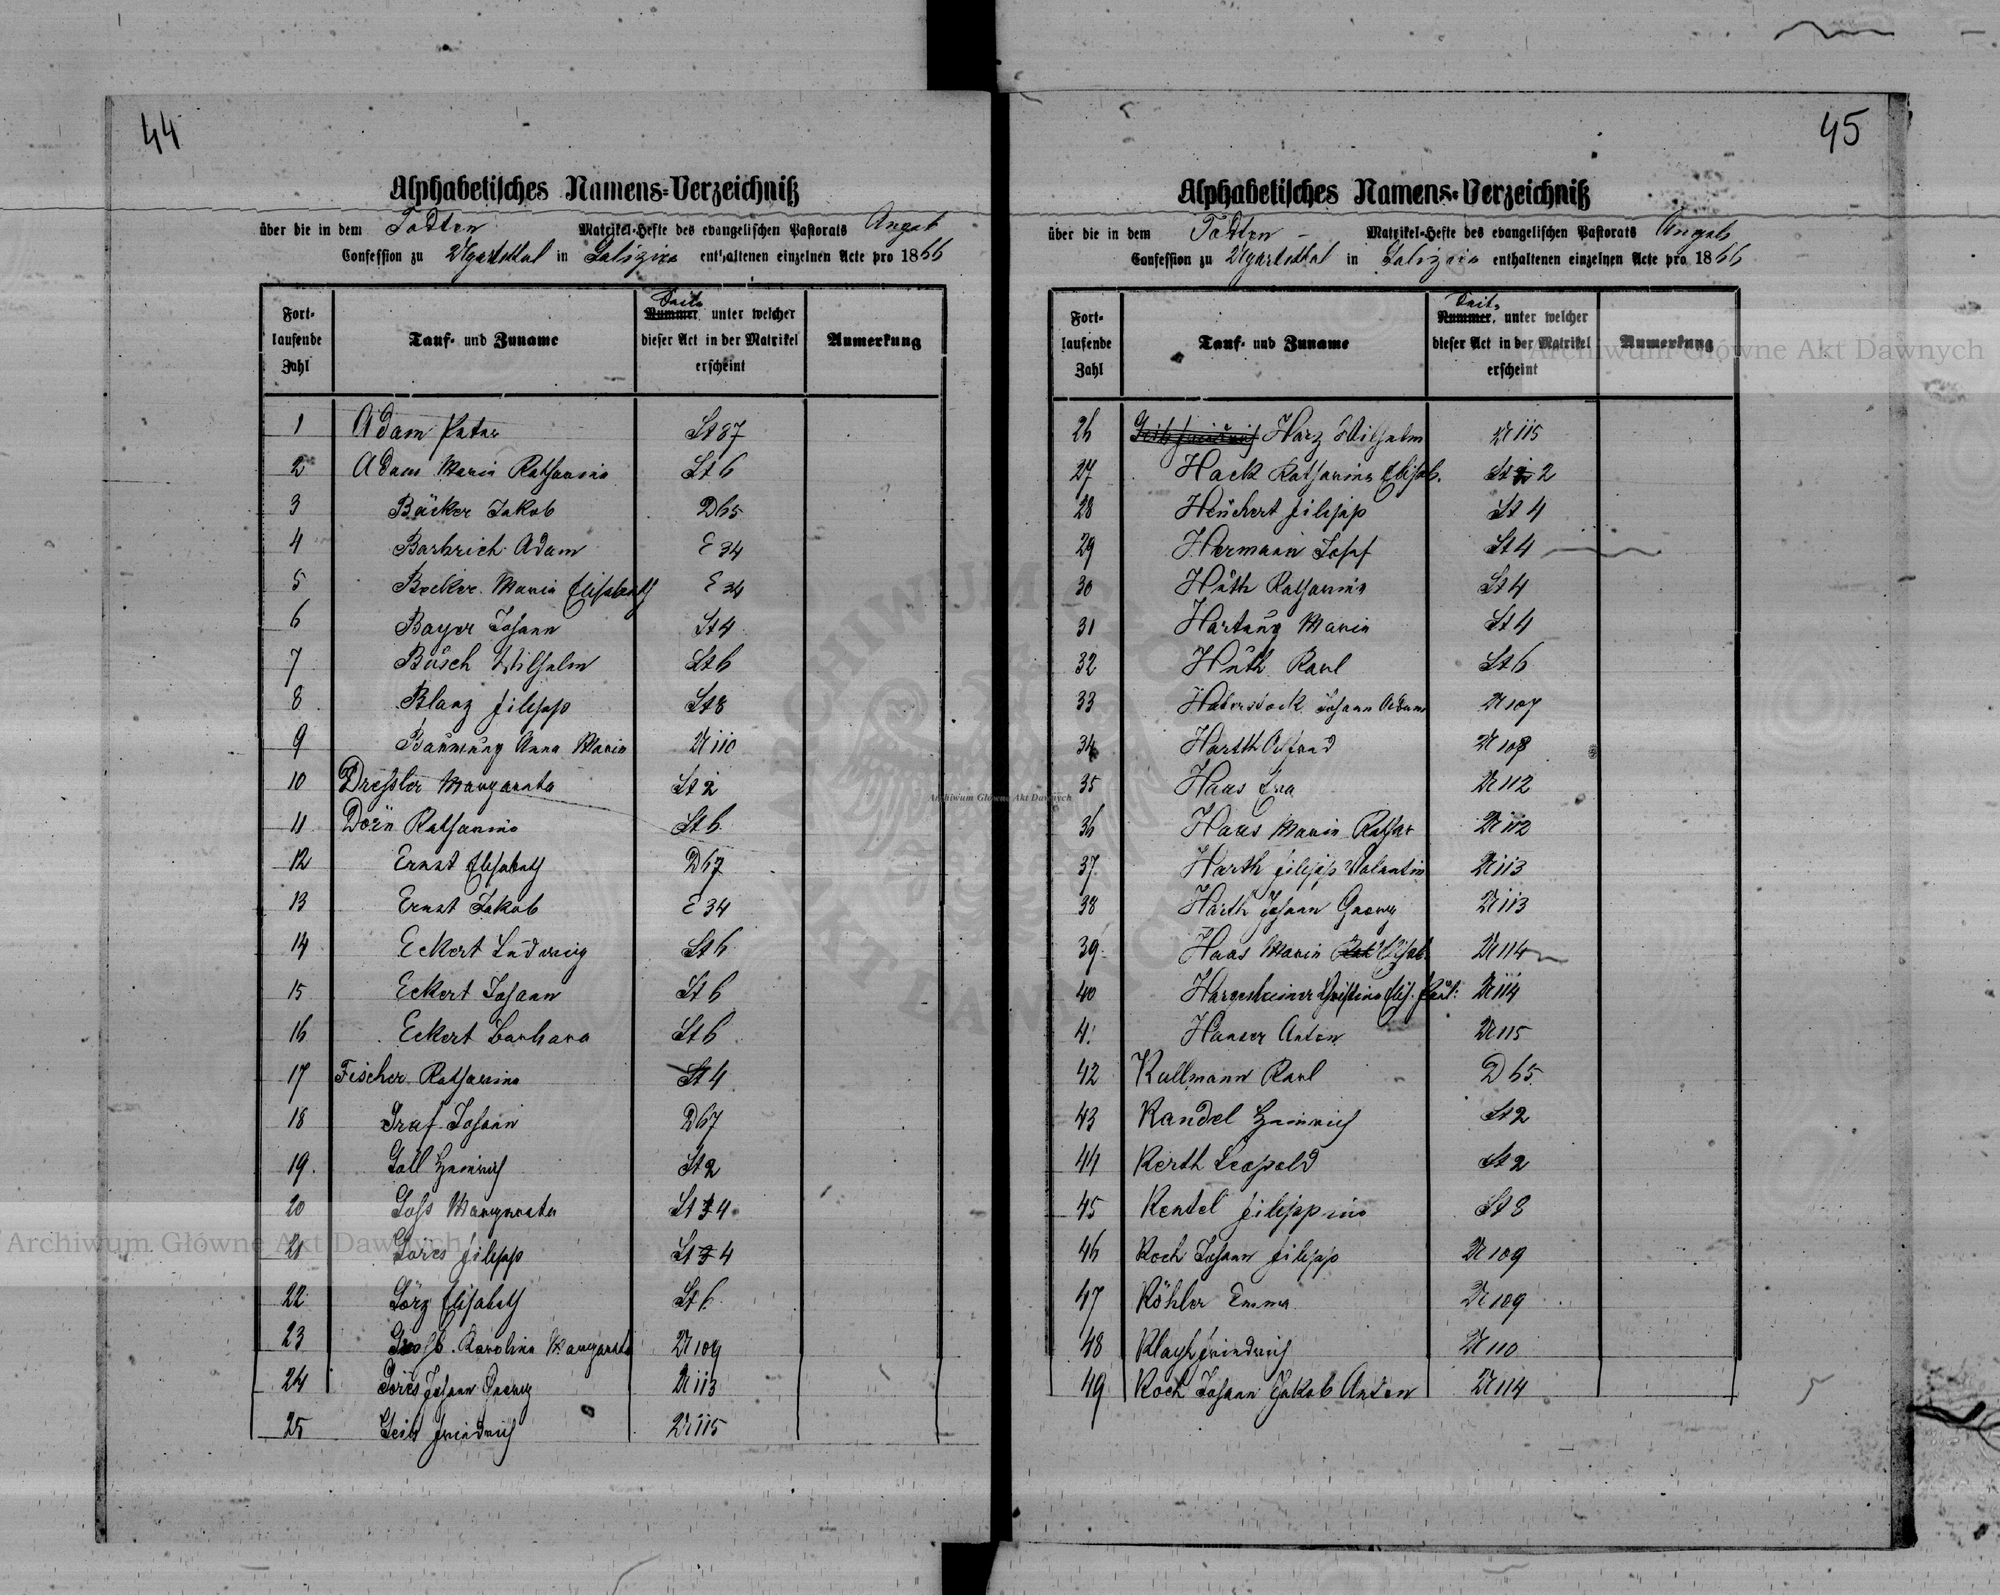 44
Alphabetisches Namens-Verzeichniß
über die in dem Todten Matrikel-Hefte des evangelischen Pastorats Augsb
Confession zu Ugartsthal in Galizien enthaltenen einzelnen Acte pro 1866
Fortlaufende Zahl Tauf- und Zuname Seite Nummer unter welcher dieser Act in der Matrikel erscheint Anmerkung
1 Adam Peter St 87
2 Adam Maria Katharina St 6
3 Bäcker Jakob D 65
4 Barbrich Adam E 34
5 Becker Maria Elisabeth E 34
6 Bayer Johann St 4
7 Busch Wilhelm St 6
8 Blanz Filipp St 8
9 Baumung Anna Maria U 110
10 Dreßler Margaretha St 2
11 Dorn Katharina St 6
12 Ernst Elisabeth D 67
13 Ernst Jakob E 34
14 Eckert Ludwig St 6
15 Eckert Johann St 6
16 Eckert Barbara St 6
17 Fischer Katharina St 4
18 Graf Johann D 67
19 Gall Heinrich St 2
20 Goß Margaretha St 4
21 Göres Filipp St 4
22 Görz Elisabeth St 6
23 Groß Karolina Margareta U 109
24 Göres Johann Georg U 113
25 Geib Friedrich U 115
45
Alphabetisches Namens-Verzeichniß
über die in dem Todten Matrikel-Hefte des evangelischen Pastorats Augsb
Confession zu Ugartsthal in Galizien enthaltenen einzelnen Acte pro 1866
Fortlaufende Zahl Tauf- und Zuname Seite Nummer unter welcher dieser Act in der Matrikel erscheint Anmerkung
26 Geib Friedrich Harz Wilhelm U 115
27 Hack Katharina Elisab. St 2
28 Heuchert Filipp St 4
29 Hermann Josef St 4
30 Huth Katharina St 4
31 Hartung Maria St 4
32 Huth Karl St 6
33 Haberstock Johann Adam U 107
34 Harth U 108
35 Haas Eva U 112
36 Haas Maria Kathar U 112
37 Harth Filipp Valentin U 113
38 Harth Johann Georg U 113
39 Haas Maria Elisab. U 114
40 Hargesheimer Christina Elis. U 114
41 Hanser Anton U 115
42 Kullmann Karl D 65
43 Kandel Heinrich St 2
44 Kerth Leopold St 2
45 Kentel Filippina St 8
46 Koch Johann Filipp U 109
47 Köhler Emma U 109
48 Friedrich U 110
49 Koch Johann Jakob Anton U 114
Archiwum Główne Akt Dawnych
Archiwum Główne Akt Dawnych
Archiwum Główne Akt Dawnych